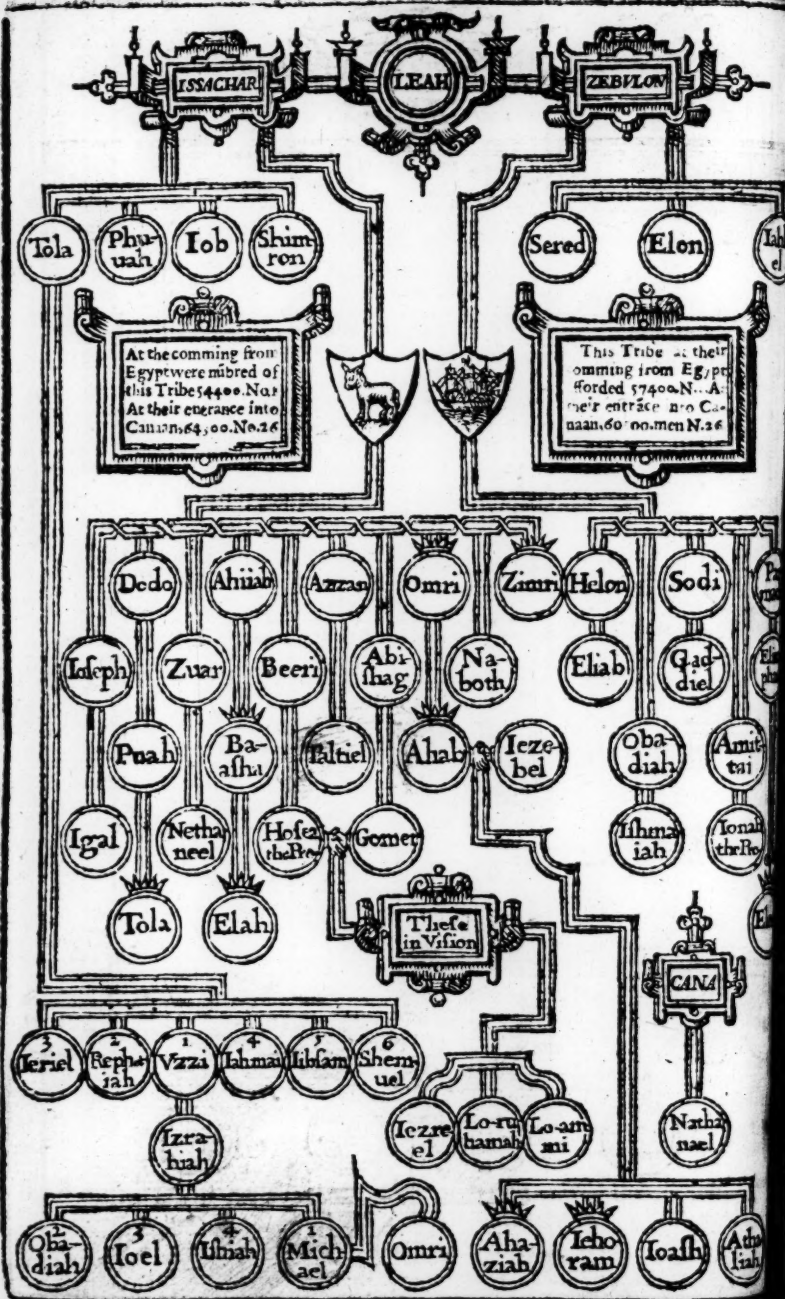 ISSACHAR
LEAH
ZEBVLON
Tola
Phu-
uah
Iob
Shim-
ron
Sered
Elon
Iah
el
At the comming from
Egypt were nũbred of
this Tribe 54400. No.1
At their enerance into
Canaan, 64,00. No. 26
This Tribe at their
omming from Egypt
fforded 57400. N... A
their entrãce into Ca-
naan, 60 00. men N. 26
Dodo
Ahiiah
Azzan
Omri
Zimri
Helon
Sodi
Ioseph
Zuar
Beeri
Abi-
shag
Na-
both
Eliab
Gad-
diel
Puah
Ba-
asha
Paltiel
Ahab
Ieze-
bel
Oba-
diah
Amit-
tai
Igal
Netha
neel
Hosea
the Pro
Gomer
Ishma
iah
Ionah
the Pro
Tola
Elah
These
in Vision
CANA
3
Ieriel
2
Repha
iah
1
Vzzi
4
Iahmai
5
Iibsam
6
Shem-
uel
Izra-
hiah
Iezre
el
Lo-ru
hamah
Lo-am
mi
Natha
nael
2
Oba-
diah
3
Ioel
4
Ishiah
1
Mich
ael
Omri
Aha-
ziah
Ieho-
ram
Ioash
Atha
liah